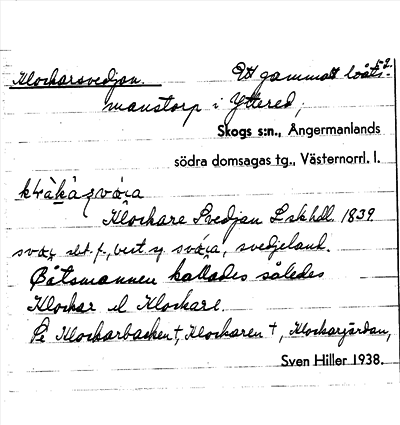 Klockarsvedjan. Ett gammalt båts- 52.
manstorp i Yttered,
Skogs s:n., Ångermanlands
södra domsagas tg., Västernorrl. l.
Klockare Svedjan L skhdl. 1839.
svedjeland.
Båtsmannen kallades således
Klockar el Klockare.
Se Klockarbacken †, Klockaren †, Klockarjärdan,
Sven Hiller 1938.